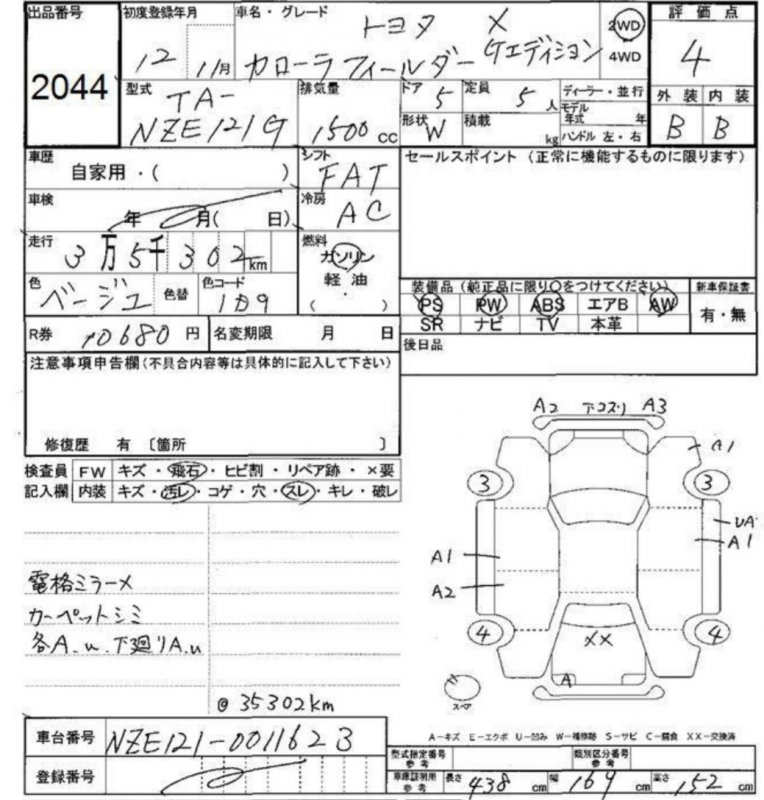 出品番号 初度登録年月 車名・グレード 評価点
2044 12 11月 トヨタ X
カローラフィールダー Gエディション 2WD 4WD 4
型式 排気量 ドア 5 定員 5人 ディーラー・並行 外装 内装
TA- NZE121G 1500cc 形状 W 積載 kg モデル年式 年 B B
ハンドル 左・右
車歴 シフト セールスポイント (正常に機能するものに限ります)
自家用・( ) FAT
車検 冷房
年 月( 日) AC
走行 燃料
3万5千302km ガソリン
軽油
・
( )
色 色替 色コード 装備品 (純正品に限り○をつけてください) 新車保証書
ベージュ PS PW ABS エアB AW 有・無
SR ナビ TV 本革
R券 10680円 名変期限 月 日 後日品
注意事項申告欄(不具合内容等は具体的に記入して下さい)
修復歴 有 〔箇所 〕
A2 下コスリ A3
検査員 FW キズ・飛石・ヒビ割・リペア跡・×要
記入欄 内装 キズ・汚レ・コゲ・穴・スレ・キレ・破レ
A1
3 3
UA
A1 A1
A2
電格ミラーメ
カーペットシミ
各A.u.下廻りA.u
4 4
XX
A
スペア
@35302km
A-キズ E-エクボ U-凹み W-補修跡 S-サビ C-腐食 XX-交換済
車台番号 NZE121-0011623
型式指定番号 参考 類別区分番号 参考
登録番号
車庫証明用 参考 長さ 438cm 幅 169cm 高さ 152cm